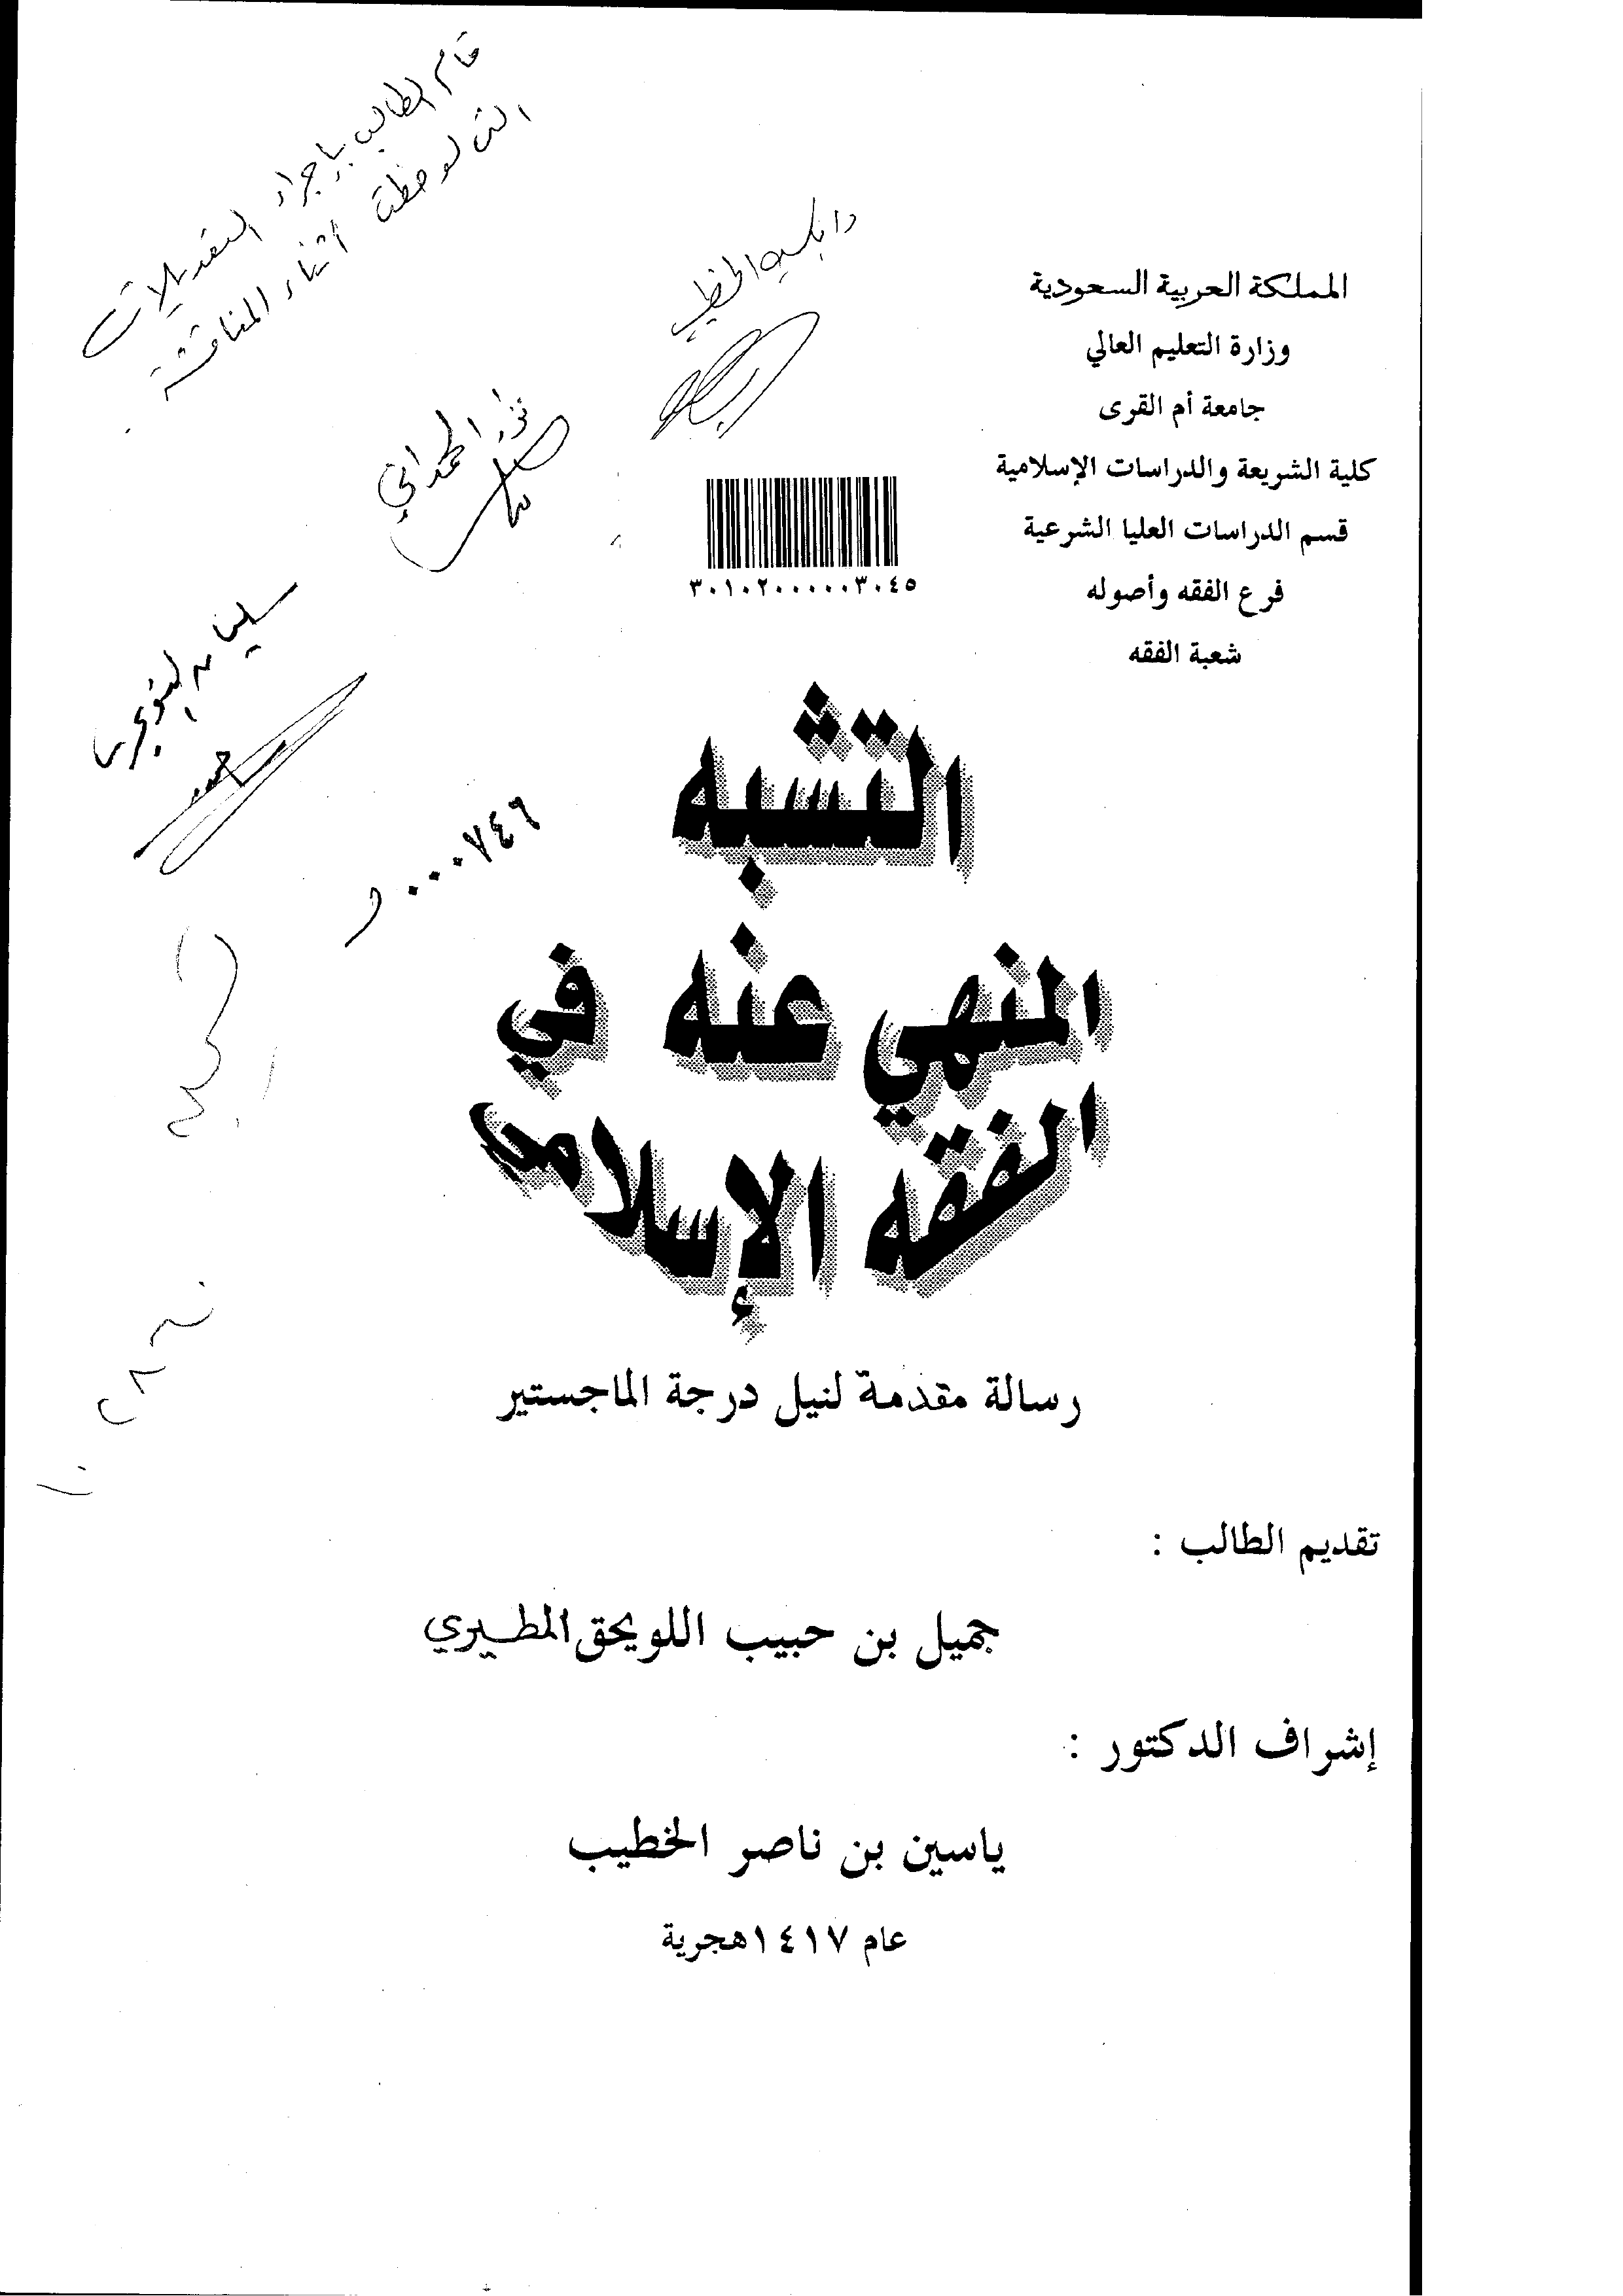 قام الطالب بإجراء التعديلات
التي لوحظت أثناء المناقشة
المملكة العربية السعودية
وزارة التعليم العالي
جامعة أم القرى
كلية الشريعة والدراسات الإسلامية
قسم الدراسات العليا الشرعية
فرع الفقه وأصوله
شعبة الفقه
٣٠١٠٢٠٠٠٠٠٣٠٤٥
٠٠٠٧٤٦
التشبه
المنهي عنه في
الفقه الإسلامي
رسالة مقدمة لنيل درجة الماجستير
تقديم الطالب :
جميل بن حبيب اللويحق المطيري
إشراف الدكتور :
ياسين بن ناصر الخطيب
عام ١٤١٧هجرية